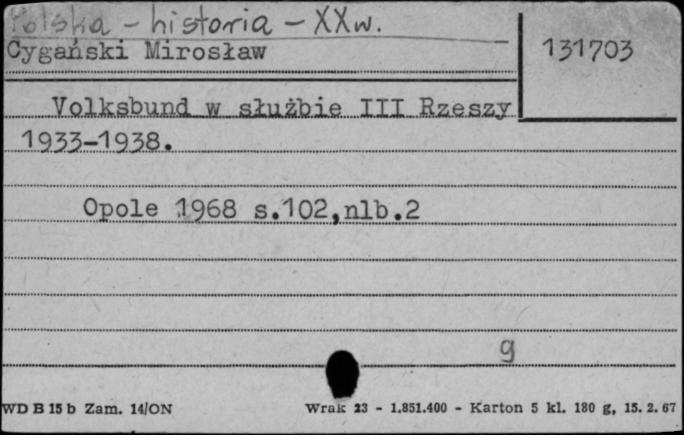 Polska - historia - XXw.
Cygański Mirosław
131703
Volksbund w służbie III Rzeszy
1933-1938.
Opole 1968 s.102,nlb.2
g
WD B 15 b Zam. 14/ON
Wrak 23 - 1.851.400 - Karton 5 kl. 180 g, 15. 2. 67